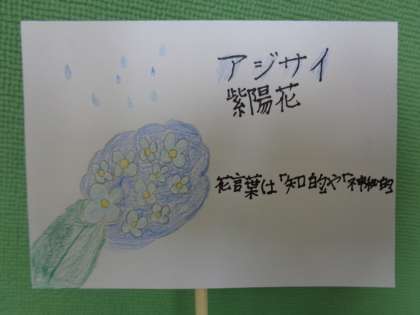 アジサイ
紫陽花
花言葉は「知的や「神秘的